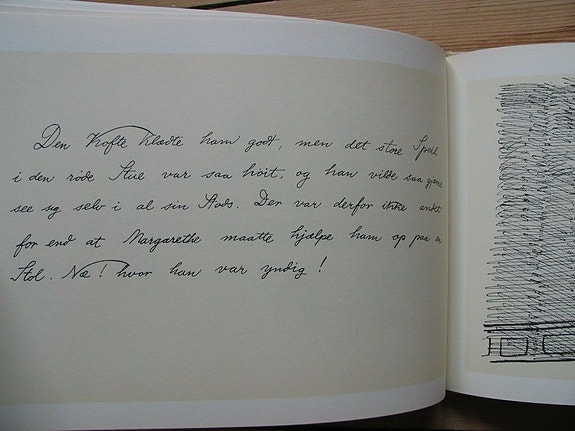 Den Kofte klædte ham godt, men det store Speil
i den røde Stue var saa høit, og han vilde saa gjerne
see sig selv i al sin Stads. Der var derfor ikke andet
for end at Margarethe maatte hjælpe ham op paa en
Stol. Næ! hvor han var yndig!